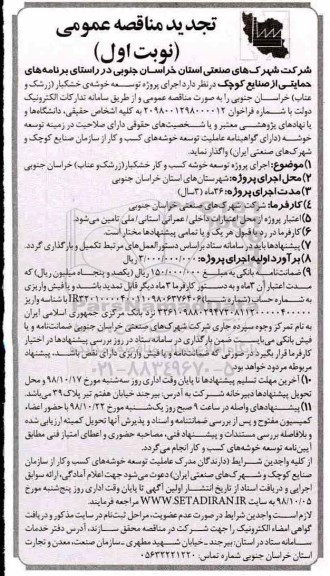 تجدید مناقصه عمومی
(نوبت اول)
شرکت شهرک‌های صنعتی استان خراسان جنوبی در راستای برنامه‌های
حمایتی از صنایع کوچک در نظر دارد اجرای پروژه توسعه خوشه‌ی خشکبار (زرشک و
عناب) خراسان جنوبی را به صورت مناقصه عمومی و از طریق سامانه تدارکات الکترونیک
دولت با شماره فراخوان ۲۰۹۸۰۰۱۲۹۸۰۰۰۰۱۲ به کلیه اشخاص حقیقی، دانشگاه‌ها و
یا نهادهای پژوهشی معتبر و یا شخصیت‌های حقوقی دارای صلاحیت در زمینه توسعه
خوشه (دارای گواهینامه عاملیت توسعه خوشه‌های کسب و کار از سازمان صنایع کوچک و
شهرک‌های صنعتی ایران) واگذار نماید.
۱) موضوع: اجرای پروژه توسعه خوشه کسب و کار خشکبار (زرشک و عناب) خراسان جنوبی
۲) محل اجرای پروژه: شهرستان‌های استان خراسان جنوبی
۳) مدت اجرای پروژه: ۳۶ ماه (۳ سال)
۴) کارفرما: شرکت شهرک‌های صنعتی خراسان جنوبی
۵) اعتبار پروژه از محل اعتبارات داخلی / عمرانی استانی / ملی تامین می‌شود.
۶) کارفرما در رد یا قبول هر یک و یا تمامی پیشنهادها مختار است.
۷) پیشنهادها باید در سامانه ستاد براساس دستورالعمل‌های مرتبط تکمیل و بارگذاری گردد.
۸) برآورد اولیه اجرای پروژه: ۳/۰۰۰/۰۰۰/۰۰۰ ریال
۹) ضمانت‌نامه بانکی به مبلغ ۱۵۰/۰۰۰/۰۰۰ ریال (یکصد و پنجاه میلیون ریال) که
مدت اعتبار آن ۳ ماه و به دستور کارفرما ۳ ماه دیگر قابل تمدید باشد و یا فیش واریزی
به شماره حساب (شماره شبا)
نزد بانک مرکزی جمهوری اسلامی ایران
به نام تمرکز وجوه سپرده جاری شرکت شهرک‌های صنعتی خراسان جنوبی ضمانت‌نامه و یا
فیش بانکی می‌بایست ضمن بارگذاری در سامانه ستاد در روز بررسی پیشنهادها در اختیار
کارفرما قرار بگیرد در صورتی که ضمانت‌نامه و یا فیش واریزی دارای نقص باشد، پیشنهاد
مربوطه مردود خواهد بود.
۱۰) آخرین مهلت تسلیم پیشنهادها تا پایان وقت اداری روز سه‌شنبه مورخ ۹۸/۱۰/۱۷ و محل
تحویل پیشنهادها دبیرخانه شرکت به آدرس: بیرجند خیابان هفتم تیر پلاک ۳۹ می‌باشد.
۱۱) پیشنهادهای واصله در ساعت ۹ صبح روز یک‌شنبه مورخ ۹۸/۱۰/۲۲ با حضور اعضاء
کمیسیون مفتوح و پس از بررسی ضمانتنامه و اسناد و پذیرش آنها تحویل کمیته ارزیابی شده
و بلافاصله بررسی مستندات و پیشنهاد فنی، مصاحبه حضوری و اعطای امتیاز فنی مطابق
آیین‌نامه توسعه خوشه‌های کسب و کار انجام می‌گردد.
از کلیه واجدین شرایط (دارندگان مدرک عاملیت توسعه خوشه‌های کسب و کار از سازمان
صنایع کوچک و شهرک‌های صنعتی ایران) دعوت می‌شود جهت اعلام آمادگی، ارائه سوابق
اجرایی و دریافت اسناد از تاریخ انتشار اولین آگهی تا پایان وقت اداری روز پنج‌شنبه مورخ
۹۸/۱۰/۰۵ به سایت WWW.SETADIRAN.IR مراجعه فرمایند.
لازم است واجدین شرایط در صورت عدم عضویت، مراحل ثبت‌نام در سایت مذکور و دریافت
گواهی امضاء الکترونیک را جهت شرکت در مناقصه محقق سازند، آدرس دفتر خدمات
سامانه ستاد در استان: بیرجند _ خیابان شهید مطهری _ سازمان صنعت، معدن و تجارت
استان خراسان جنوبی شماره تماس: ۰۵۶۳۲۲۲۱۲۲۰